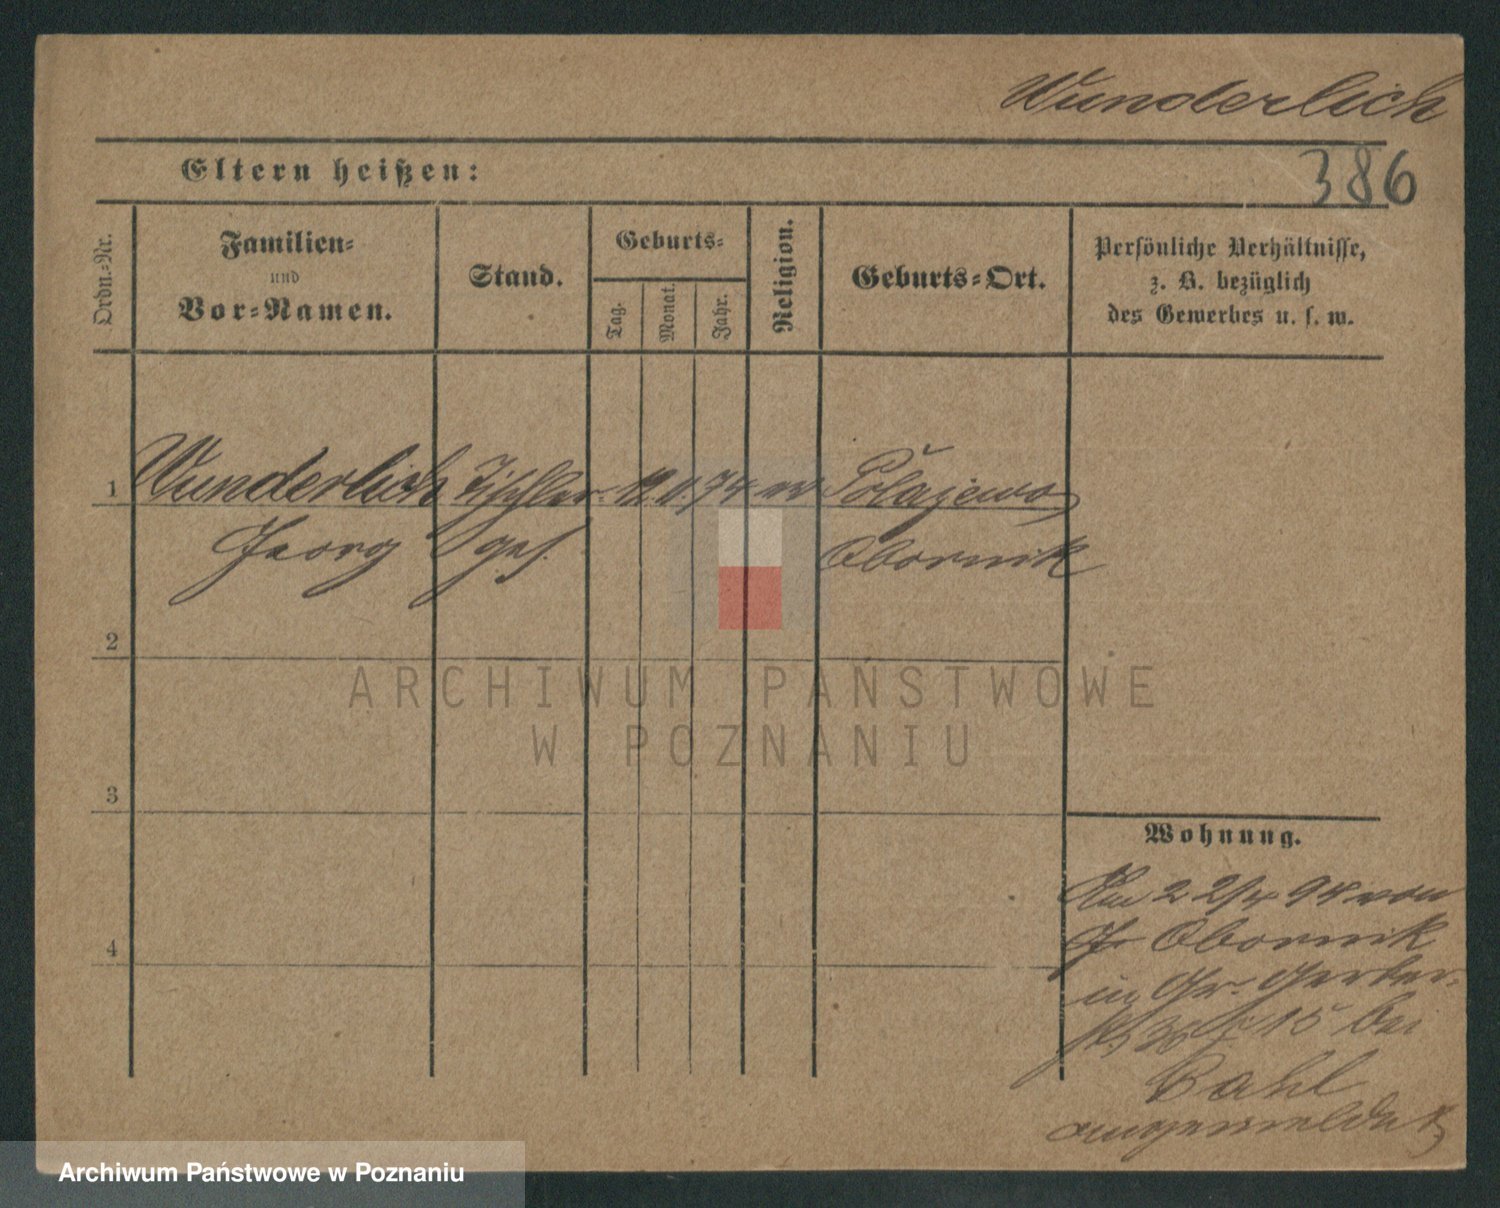 Wunderlich
386
Eltern heißen:
Ordn.-Nr.
Familien-
und
Vor-Namen.
Stand.
Geburts-
Tag.
Monat.
Jahr.
Religion.
Geburts-Ort.
Persönliche Verhältnisse,
z. B. bezüglich
des Gewerbes u. s. w.
1 Wunderlich Tischler 12. 11. 74 ev Polajewo
Georg ges. Obornik
2
ARCHIWUM PAŃSTWOWE
W POZNANIU
3
Wohnung.
Am 22/4 94 von
Obornik
in Gr. Gerber-
15 bei
Bahl
angemeldet
4
Archiwum Państwowe w Poznaniu